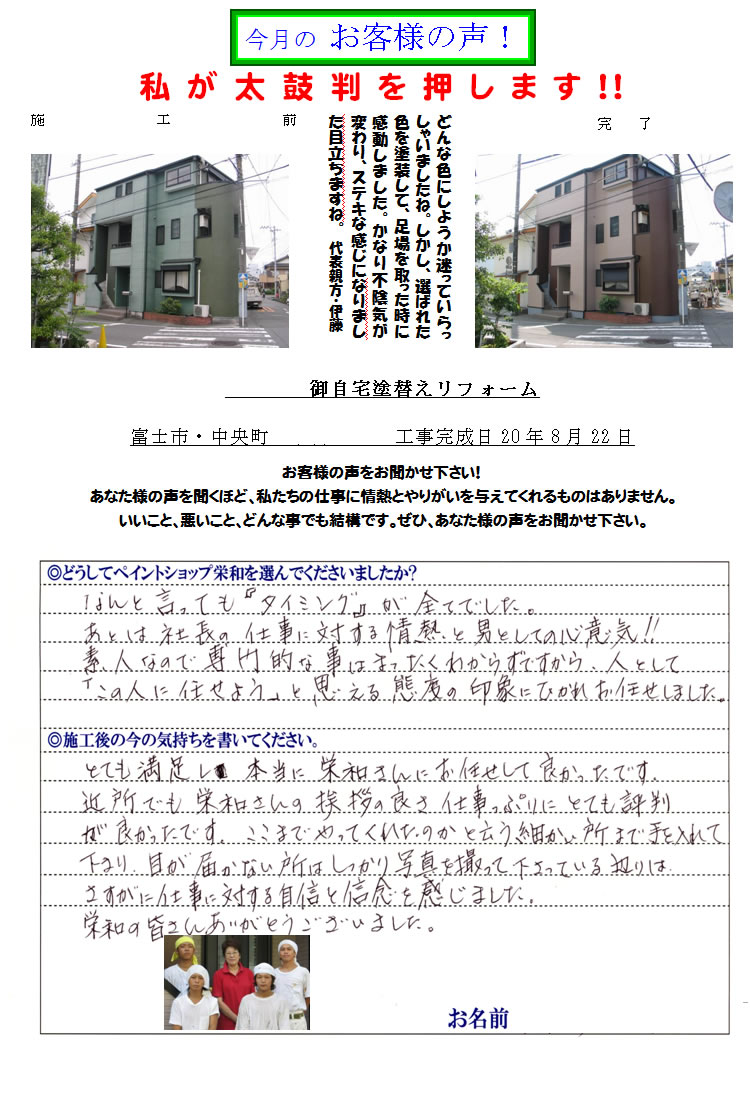 今月の お客様の声！
私が太鼓判を押します!!
施工前
どんな色にしようか迷っていらっ
しゃいましたね。しかし、選ばれた
色を塗装して、足場を取った時に
感動しました。かなり不陰気が
変わり、ステキな感じになりまし
た目立ちますね。 代表親方・伊藤
完了
御自宅塗替えリフォーム
富士市・中央町 工事完成日20年8月22日
お客様の声をお聞かせ下さい!
あなた様の声を聞くほど、私たちの仕事に情熱とやりがいを与えてくれるものはありません。
いいこと、悪いこと、どんな事でも結構です。ぜひ、あなた様の声をお聞かせ下さい。
◎どうしてペイントショップ栄和を選んでくださいましたか?
なんと言っても『タイミング』が全てでした。
あとは社長の仕事に対する情熱と男としての心意気!!
素人なので専門的な事はまったくわからずですから、人として
「この人に任せよう」と思える態度の印象にひかれお任せしました。
◎施工後の今の気持ちを書いてください。
とても満足し 本当に栄和さんにお任せして良かったです.
近所でも栄和さんの挨拶の良さ仕事っぷりにとても評判
が良かったです。ここまでやってくれたのかと云う細かい所まで手を入れて
下さり、目が届かない所はしっかり写真を撮って下さっている辺りは、
さすがに仕事に対する自信と信念を感じました。
栄和の皆さんありがとうございました。
お名前